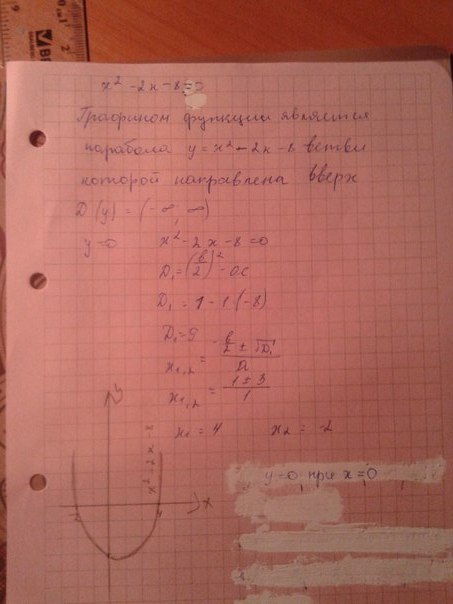 x² - 2x - 8 = 0
Графиком функции является
парабола y = x² - 2x - 8 ветви
которой направлена вверх
D(y) = (-∞, ∞)
y = 0 x² - 2x - 8 = 0
D₁ = (b/2)² - ac
D₁ = 1 - 1·(-8)
D₁ = 9
x₁,₂ = (-b/2 ± √D₁)/a
x₁,₂ = (1 ± 3)/1
x₁ = 4 x₂ = -2
y = 0 при x = 0
y
x² - 2x - 8
x
-2
4